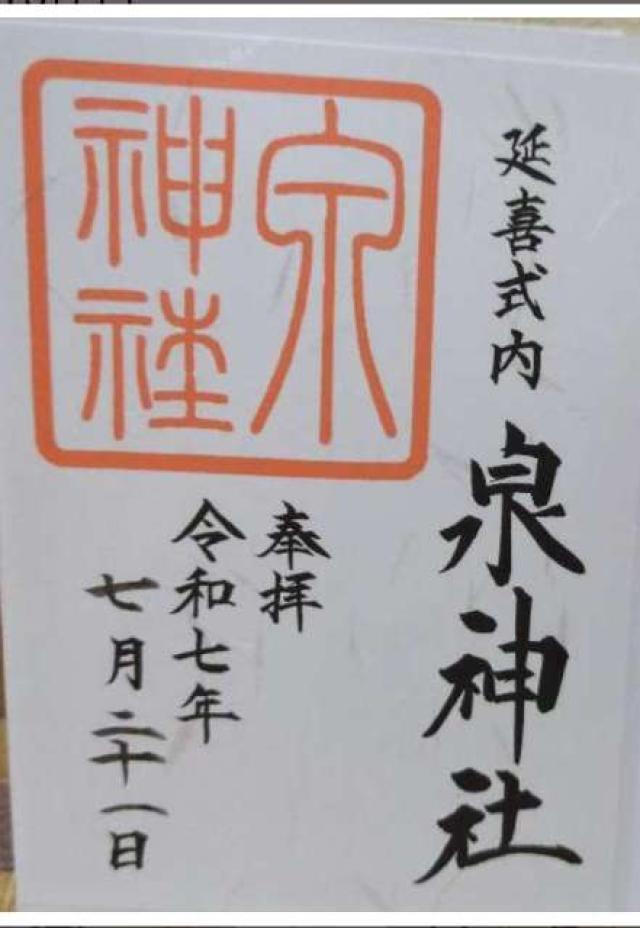 延喜式内 泉神社
奉拝
令和七年
七月二十一日
泉
神社